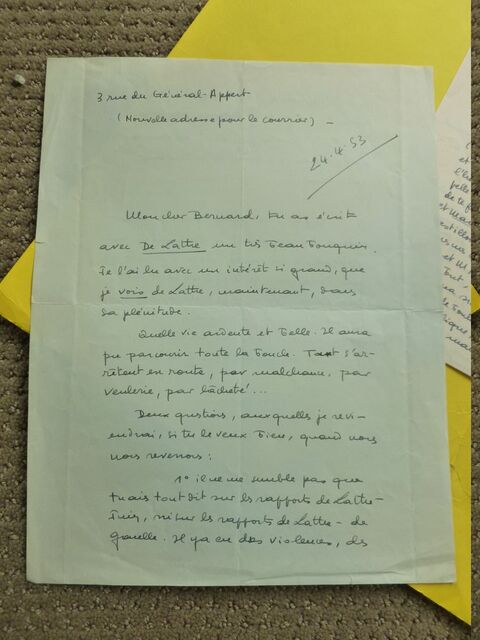 3 rue du Général-Appert
(Nouvelle adresse pour le courrier) —
24.4.53
Mon cher Bernard, tu as écrit
avec De Lattre un très beau bouquin.
Je l'ai lu avec un intérêt si grand, que
je vois de Lattre, maintenant, dans
sa plénitude.
Quelle vie ardente et belle. Il aura
pu parcourir toute la boucle. Tant s'ar-
rêtent en route, par malchance, par
veulerie, par lâcheté!...
Deux questions, auxquelles je revi-
endrai, si tu le veux bien, quand nous
nous reverrons :
1° il ne me semble pas que
tu ais tout dit sur les rapports de Lattre-
Juin, ni sur les rapports de Lattre - de
Gaulle. Il y a eu des violences, des